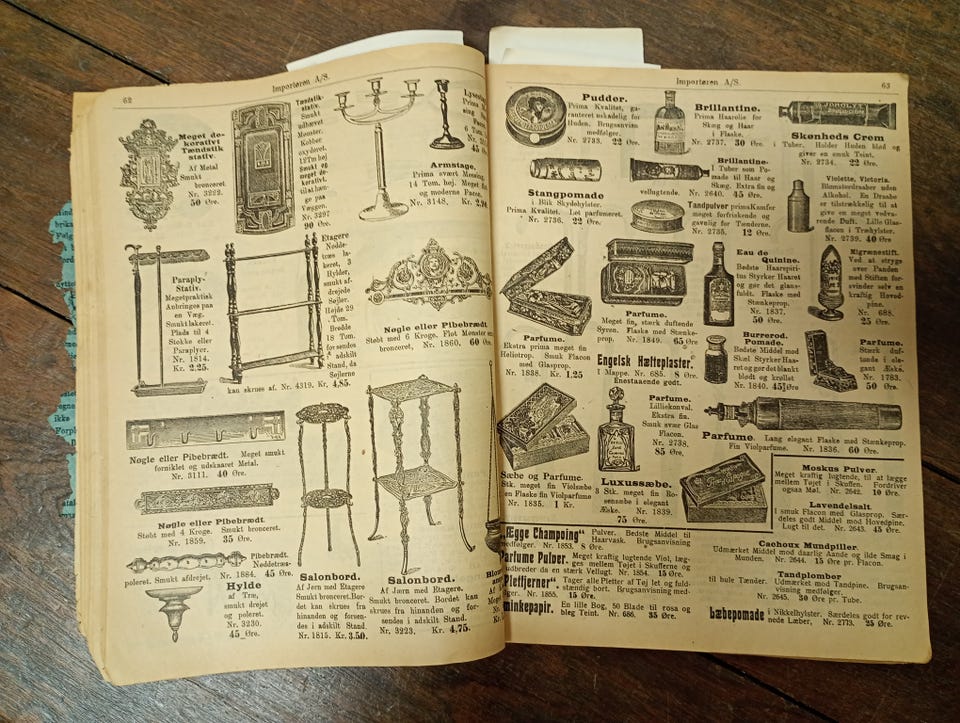 62
Importøren A/S.
Meget de-
korativt
Tændstik
stativ.
Af Metal
Smukt
bronceret.
Nr. 3222.
50 Øre.
Tændstik-
stativ.
Smukt
udhævet
Mønster.
Kobber
oxyderet.
Smukt og
meget de-
korativt
Væggen.
Nr. 3297
90 Øre.
Prima
Nr.
45
Armstage.
Prima svært Messing,
14 Tom. høj. Meget fin
og moderne Facon.
Nr. 3148. Kr. 2.90
Paraply-
Stativ.
Megetpraktisk
Anbringes paa
en Væg.
Smukt lakeret.
Plads til 4
Stokke eller
Paraplyer.
Nr. 1814.
Kr. 2.25.
Etagere
Nødde-
træs la-
keret, 3
Hylder,
smukt af-
drejede
Søjler.
Højde 29
Tom.
Bredde
18 Tom.
forsendes
i adskilt
Stand, da
Søjlerne
kan skrues af. Nr. 4319. Kr. 4,85.
Nøgle eller Pibebrædt.
Støbt med 6 Kroge. Flot Mønster
bronceret, Nr. 1860. 60 Øre
Nøgle eller Pibebrædt. Meget smukt
forniklet og udskaaret Metal.
Nr. 3111. 40 Øre.
Nøgle eller Pibebrædt.
Støbt med 4 Kroge. Smukt bronceret.
Nr. 1859. 35 Øre.
Pibebrædt.
Nøddetræs-
poleret. Smukt afdrejet. Nr. 1884. 45 Øre.
Hylde
af Træ,
smukt drejet
og poleret.
Nr. 3230.
45 Øre.
Salonbord.
Af Jern med Etagere.
Smukt bronceret. Bor-
det kan skrues fra
hinanden og forsen-
des i adskilt Stand.
Nr. 1815. Kr. 3.50.
Salonbord.
Af Jern med Etagere.
Smukt bronceret. Bordet kan
skrues fra hinanden og for-
sendes i adskilt Stand.
Nr. 3223. Kr. 4,75.
Importøren A/S.
63
Pudder.
Prima Kvalitet, ga-
ranteret uskadelig for
Huden. Brugsanvisn
medfølger.
Nr. 2733. 22 Øre.
Brillantine.
Prima Haarolie for
Skæg og Haar
i Flaske.
Nr. 2737. 30 Øre.
Skønheds Crem
i Tuber. Holder Huden blød og
giver en smuk Teint.
Nr. 2734. 22 Øre.
Stangpomade
i Blik Skydehylster.
Prima Kvalitet. Let parfumeret.
Nr. 2736. 22 Øre.
Brillantine.
i Tuber som Po-
made til Haar og
Skæg. Extra fin og
vellugtende. Nr. 2640. 45 Øre.
Tandpulver prima Kamfer
meget forfriskende og
gavnlig for Tænderne.
Nr. 2735. 12 Øre.
Violette, Victoria.
Blomsterdraaber uden
Alkohol. En Draabe
er tilstrækkelig til at
give en meget vedva-
rende Duft. Lille Glas-
flacon i Træhylster.
Nr. 2739. 40 Øre
Parfume.
Ekstra prima meget fin
Heliotrop. Smuk Flacon
med Glasprop.
Nr. 1838. Kr. 1.25
Parfume.
Meget fin, stærk duftende
Syren. Flaske med Stænke-
prop. Nr. 1849. 65 Øre
Engelsk Hæfteplaster.
I Mappe. Nr. 685. 8 Øre.
Enestaaende godt.
Eau de
Quinine.
Bedste Haarspiri-
tus Styrker Haaret
og gør det glans-
fuldt. Flaske med
Stænkeprop.
Nr. 1837.
50 Øre.
Migrænestift.
Ved at stryge
over Panden
med Stiften for-
svinder selv en
kraftig Hoved-
pine.
Nr. 688.
25 Øre.
Burrerod.
Pomade.
Bedste Middel mod
Skæl Styrker Haa-
ret og gør det blankt
blødt og krøllet
Nr. 1840. 45 Øre
Parfume.
Stærk duf-
tende i ele-
gant Æske.
Nr. 1783.
50 Øre.
Parfume.
Lilliekonval.
Ekstra fin.
Smuk svær Glas
Flacon.
Nr. 2738.
85 Øre.
Parfume. Lang elegant Flaske med Stænkeprop.
Fin Violparfume. Nr. 1836. 60 Øre.
Sæbe og Parfume.
Stk. meget fin Violsæbe
en Flaske fin Violparfume
Nr. 1835. 1 Kr.
Luxussæbe.
3 Stk. meget fin Ro-
sensæbe i elegant
Æske. Nr. 1839.
75 Øre.
Moskus Pulver.
Meget kraftig lugtende, til at lægge
mellem Tøjet i Skuffen. Fordriver
ogsaa Møl. Nr. 2642. 10 Øre.
Lavendelsalt.
I smuk Flacon med Glasprop. Sær-
deles godt Middel mod Hovedpine.
Lugt til det. Nr. 2643. 45 Øre.
„Ægge Champoing“ Pulver. Bedste Middel til
Haarvask. Brugsanvisning
medfølger. Nr. 1853. 8 Øre.
Parfume Pulver. Meget kraftig lugtende Viol, læg-
ges mellem Tøjet i Skufferne og
udbreder da en stærk Vellugt. Nr. 1854. 15 Øre.
„Pletfjerner“. Tager alle Pletter af Tøj let og fuld-
stændig bort. Brugsanvisning med-
følger. Nr. 1855. 15 Øre.
Sminkepapir. En lille Bog. 50 Blade til rosa og
bleg Teint. Nr. 686. 35 Øre.
Cachoux Mundpiller.
Udmærket Middel mod daarlig Aande og ilde Smag i
Munden. Nr. 2644. 15 Øre pr. Flacon.
Tandplomber
til hule Tænder. Udmærket mod Tandpine. Brugsan-
visning medfølger.
Nr. 2645. 30 Øre pr. Tube.
Læbepomade i Nikkelhylster. Særdeles godt for rev-
nede Læber, Nr. 2773. 25 Øre.